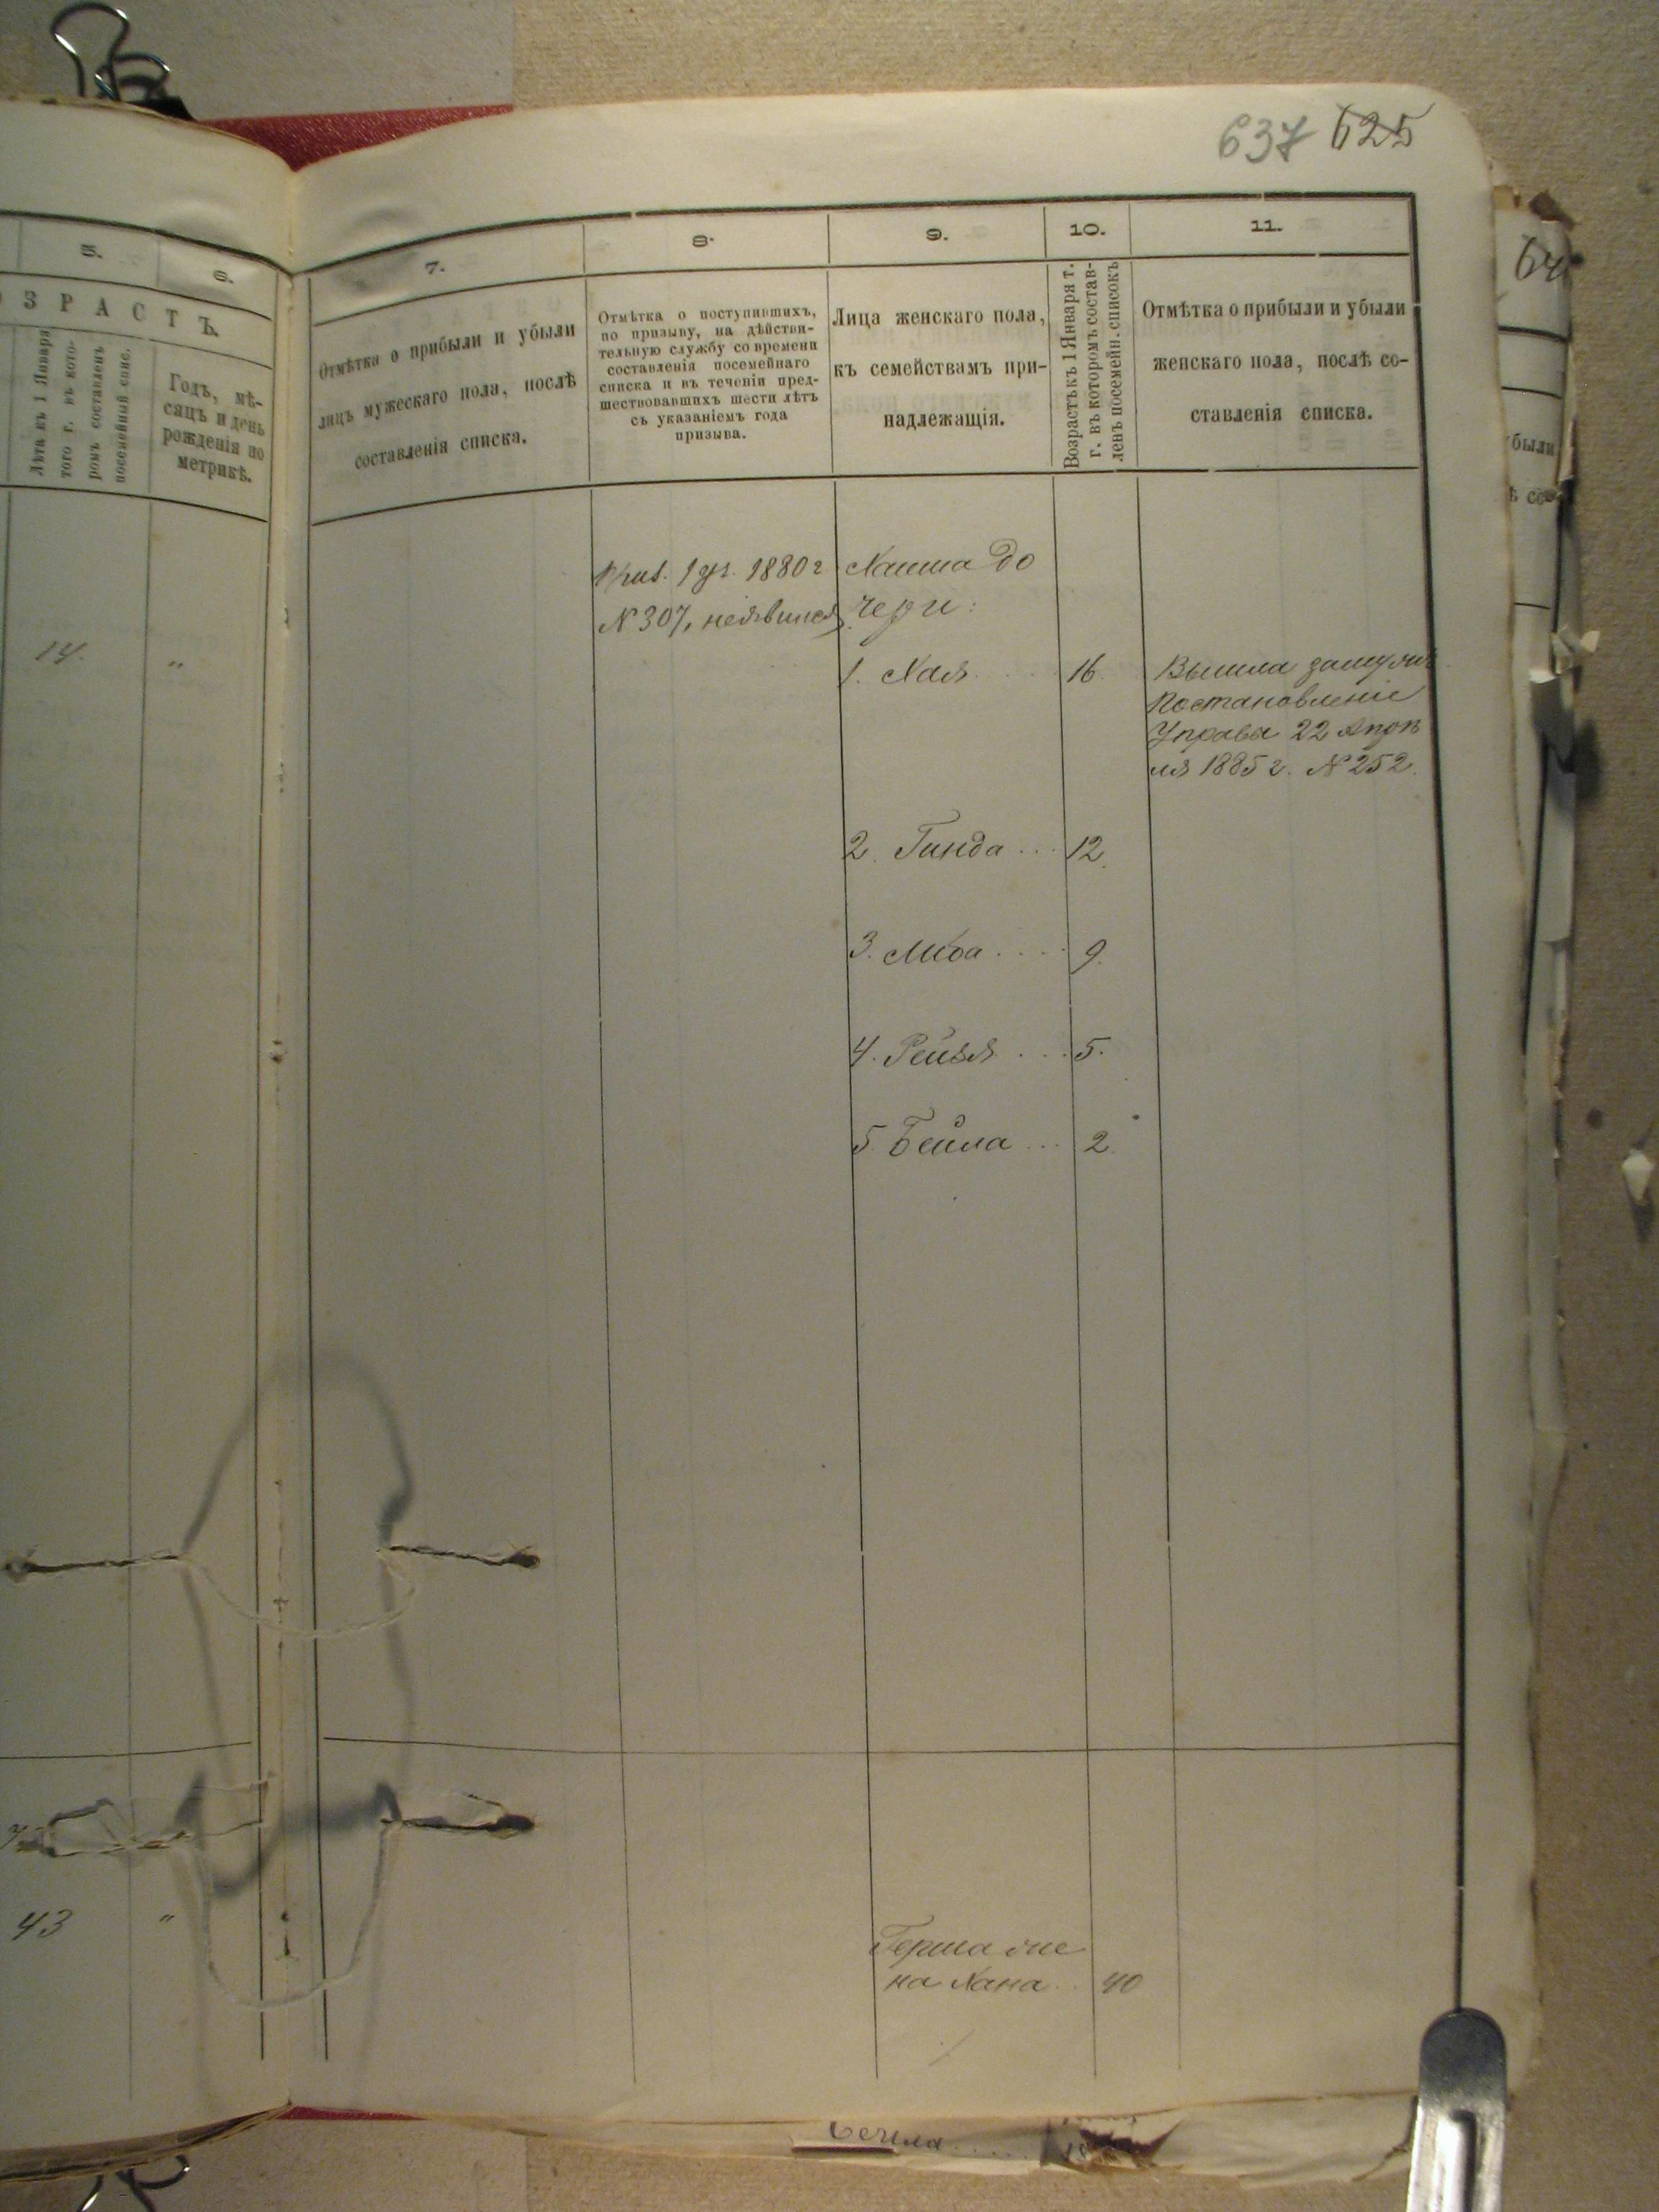 637 625
5.
6.
7.
8.
9.
10.
11.
ОЗРАСТЪ.
Лѣта къ 1 Января
того г. въ кото-
ромъ составленъ
посемейный спис.
Годъ, мѣ-
сяцъ и день
рожденія по
метрикѣ.
Отмѣтка о прибыли и убыли
лицъ мужескаго пола, послѣ
составленія списка.
Отмѣтка о поступившихъ,
по призыву, на дѣйстви-
тельную службу со времени
составленія посемейнаго
списка и въ теченіи пред-
шествовавшихъ шести лѣтъ
съ указаніемъ года
призыва.
Лица женскаго пола,
къ семействамъ при-
надлежащія.
Возрастъ къ 1 Января т.
г. въ которомъ состав-
ленъ посемейн. списокъ
Отмѣтка о прибыли и убыли
женскаго пола, послѣ со-
ставленія списка.
были
ѣ со-
1880 г
№ 307, неявился
Хаима до
чери:
14. "
1. Хая 16.
Вышла замужъ
Постановленіе
Управы 22 Апрѣ
ля 1885 г. № 252.
2. Гинда ... 12.
3. Либа .... 9.
4. Рейзя ... 5.
5 Бейла ... 2.
43 "
Герша же
на Хана .. 40
Бейла